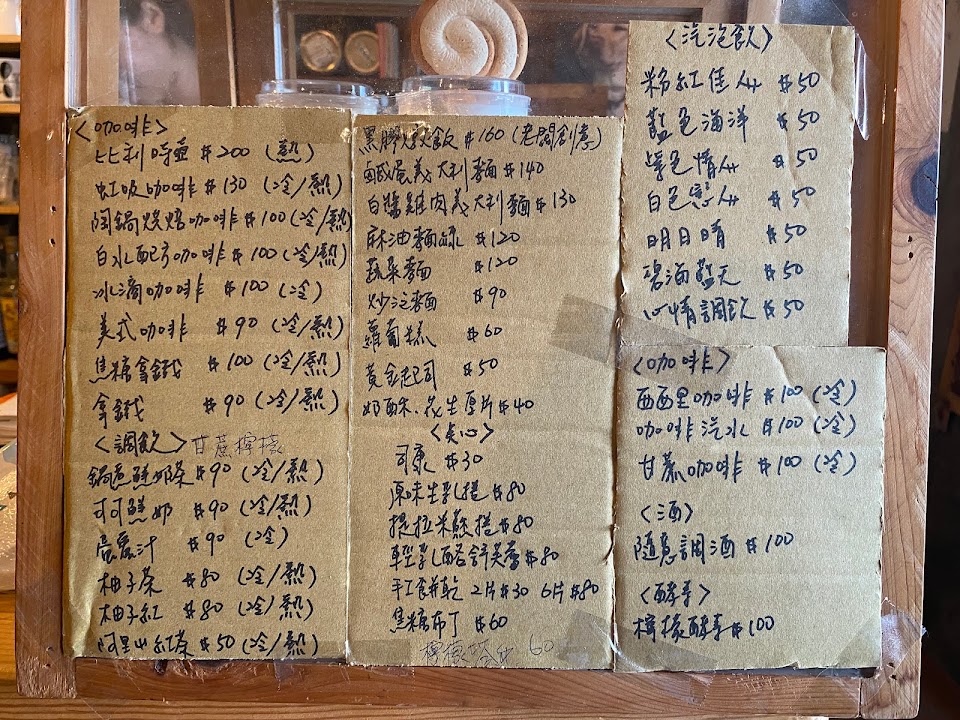 <咖啡>
比利時壺 $200 (熱)
虹吸咖啡 $130 (冷/熱)
陶鍋烘焙咖啡 $100 (冷/熱)
白水配方咖啡 $100 (冷/熱)
冰滴咖啡 $100 (冷)
美式咖啡 $90 (冷/熱)
焦糖拿鐵 $100 (冷/熱)
拿鐵 $90 (冷/熱)
<調飲> 甘蔗檸檬
鍋煮鮮奶茶 $90 (冷/熱)
可可鮮奶 $90 (冷/熱)
$90 (冷)
柚子茶 $80 (冷/熱)
柚子紅 $80 (冷/熱)
阿里山紅茶 $50 (冷/熱)
黑膠燉飯 $160 (老闆創意)
鹹蛋義大利麵 $140
白醬雞肉義大利麵 $130
麻油麵線 $120
蔬菜麵 $120
炒泡麵 $90
蘿蔔糕 $60
黃金起司 $50
奶酥、花生厚片 $40
<点心>
司康 $30
原味生乳捲 $80
提拉米蘇捲 $80
輕乳酪舒芙蕾 $80
手工餅乾 2片$30 6片$80
焦糖布丁 $60
檸檬塔 60
<汽泡飲>
粉紅佳人 $50
藍色海洋 $50
紫色情人 $50
白色戀人 $50
明日晴 $50
碧海藍天 $50
心情調飲 $50
<咖啡>
西西里咖啡 $100 (冷)
咖啡汽水 $100 (冷)
甘蔗咖啡 $100 (冷)
<酒>
隨意調酒 $100
<酵素>
檸檬酵素 $100